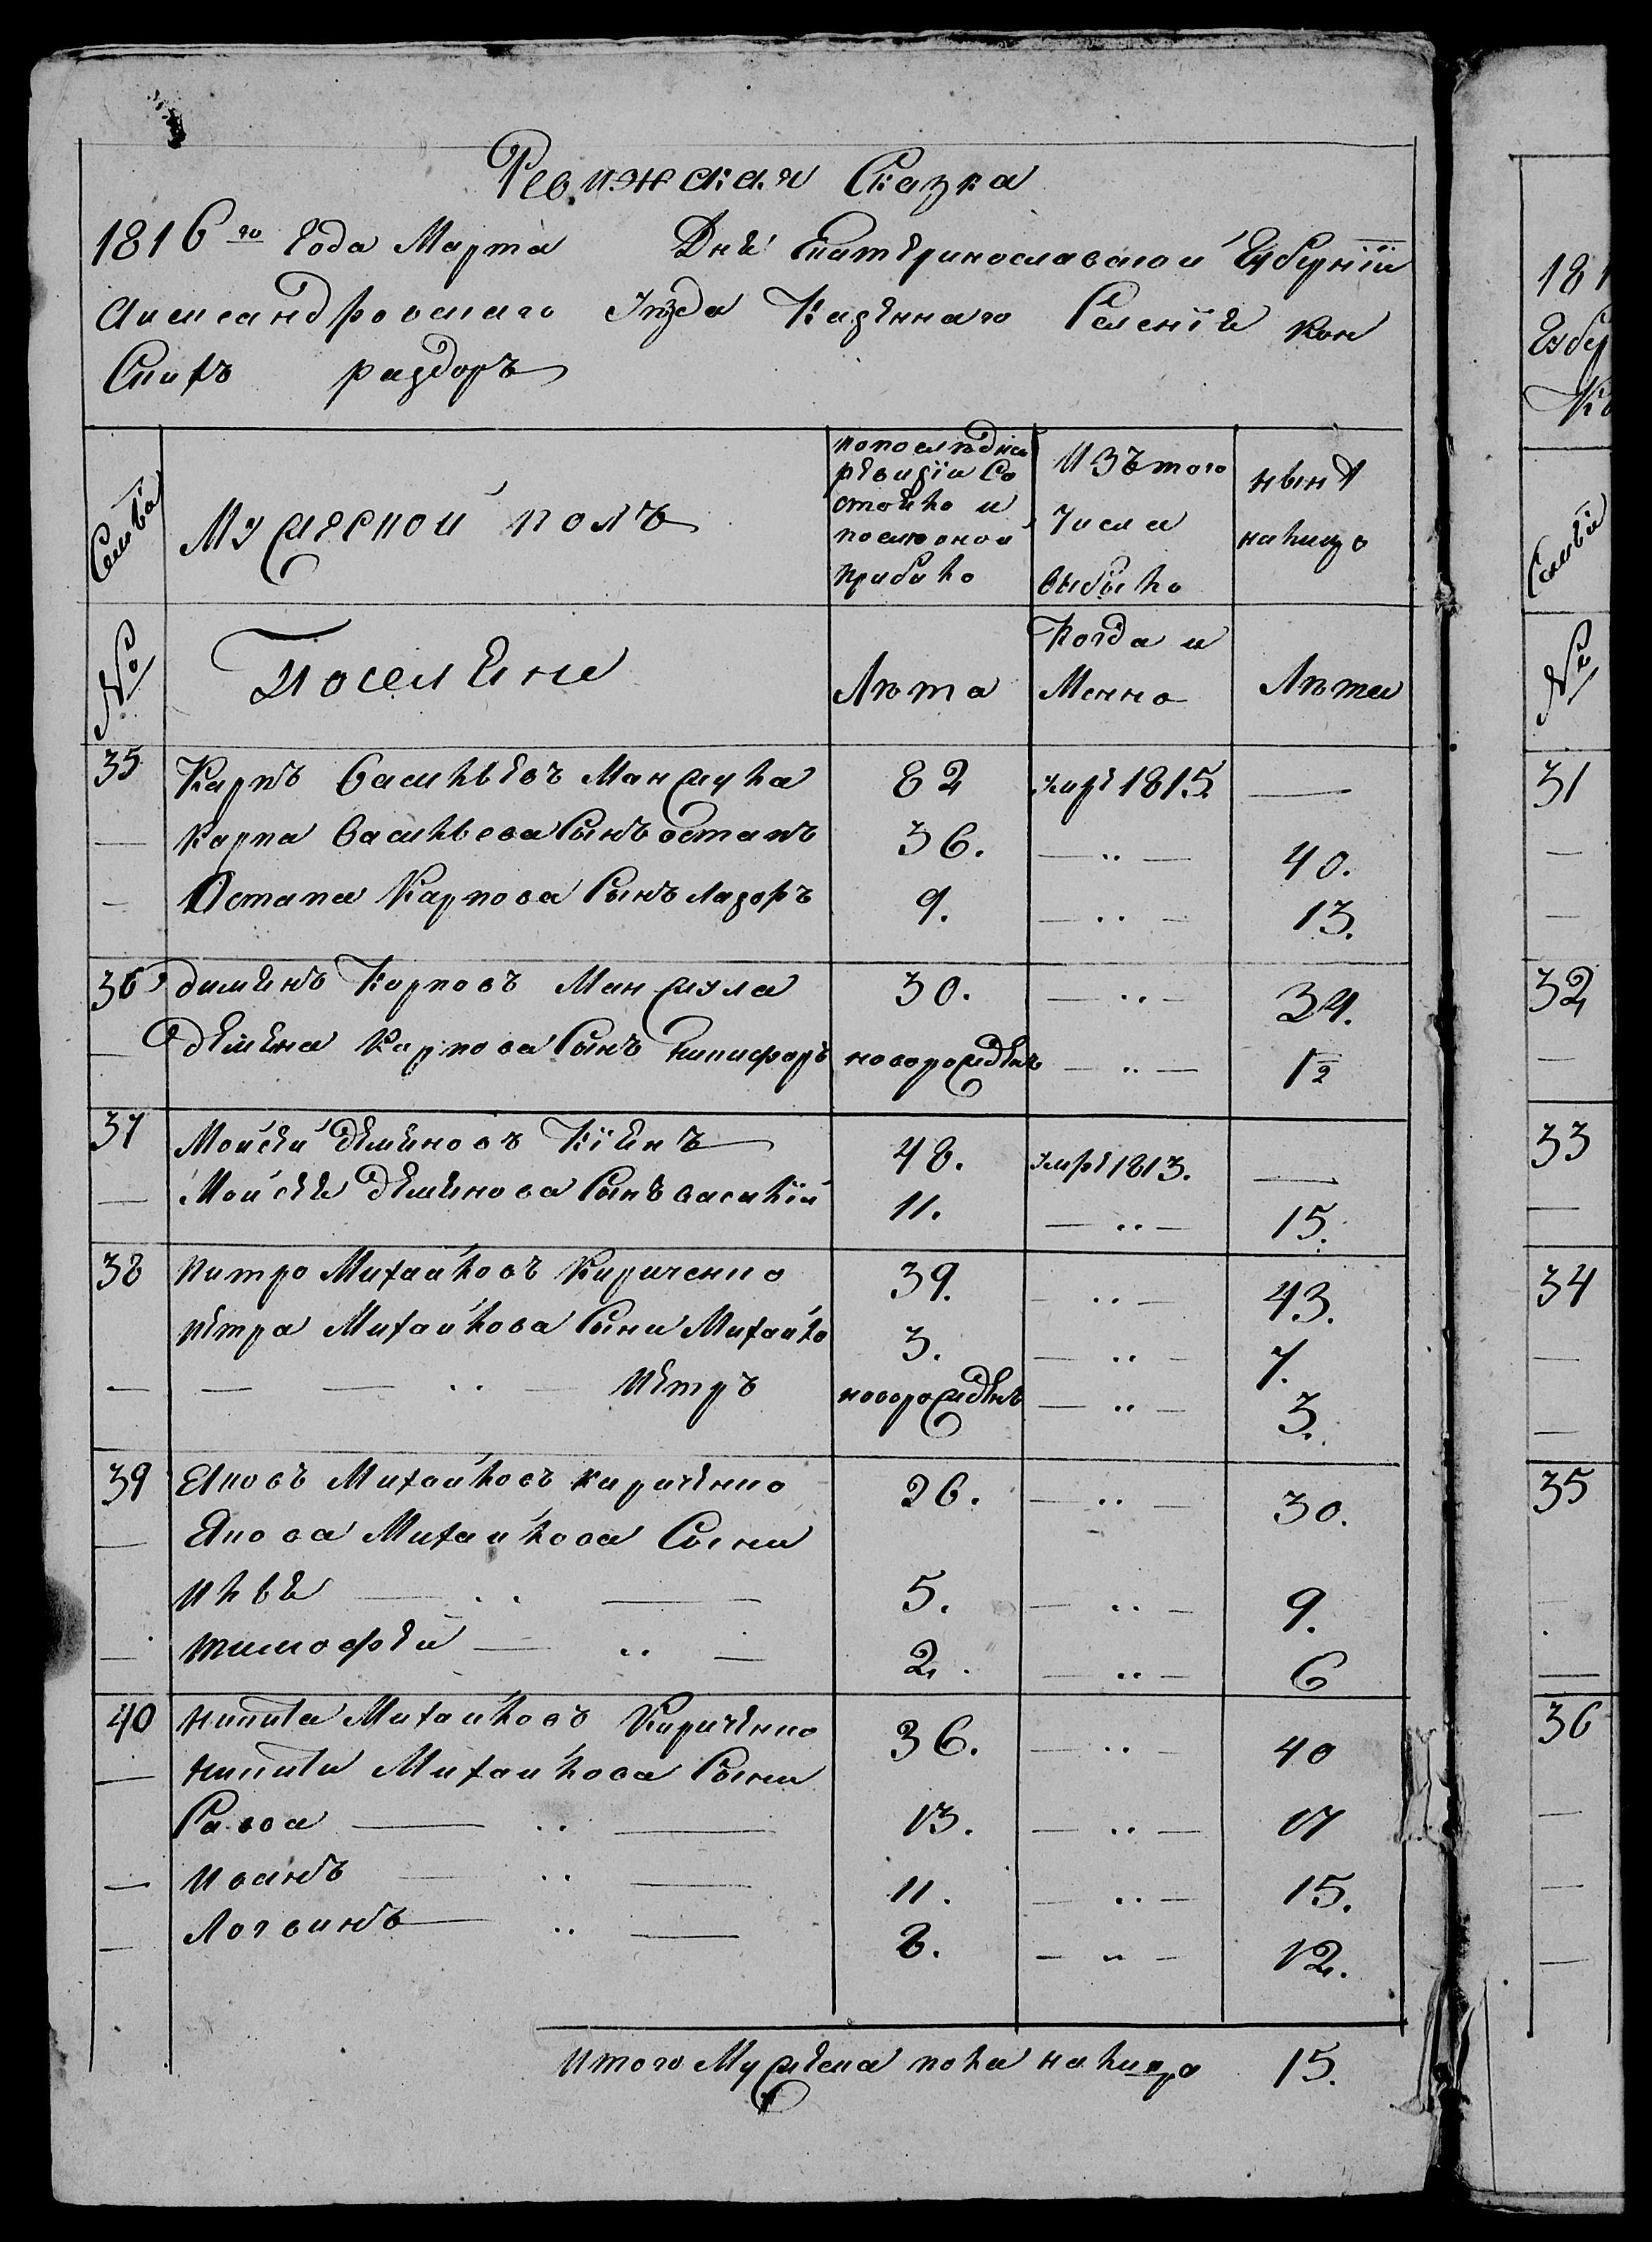 Ревижская Сказка
1816го Года Марта Дня Екатеринославской Губернии
Александровского Уезда Казенного Селения Кон
Ских раздоръ
Семьи
Мужеской полъ
попоследней ревизии Состояло и послеоной прибыло
Изътого числа выбыло
ныне налицо
№
Поселяне
Лета
Когда именно
Лета
35 Карпъ Васильевъ Манжула 82 умре 1815. —
— Карпа Васильева Сынъ остапъ 36. — .. — 40.
— Остапа Карпова Сынъ лазоръ 9. — .. — 13.
36 демянъ Карповъ Манжула 30. — .. — 34.
— демяна Карпова Сынъ никифоръ новорожденъ — .. — 1½
37 Мойсей демяновъ Кіянъ 48. умре 1813. —
— Мойсея демянова Сынъ василій 11. — .. — 15.
38 Питро Михайловъ Кириченко 39. — .. — 43.
Петра Михайлова Сыни Михайло 3. — .. — 7.
— — — .. — Петръ новорожденъ — .. — 3.
39 Яковъ Михайловъ кириченко 26. — .. — 30.
— Якова Михайлова Сыни
Илья — .. — 5. — .. — 9.
— тимофей — .. — 2. — .. — 6
40 никита Михайловъ Кириченко 36. — .. — 40
— никиты Михайлова Сыни
Савва — .. — 13. — .. — 17
— Иванъ — .. — 11. — .. — 15.
— Логвинъ — .. — 8. — .. — 12.
Итого Мужеска пола налицо 15.
181
Губер
Семьи
№
31
—
—
32
—
33
—
34
—
—
35
—
36
—
—
—